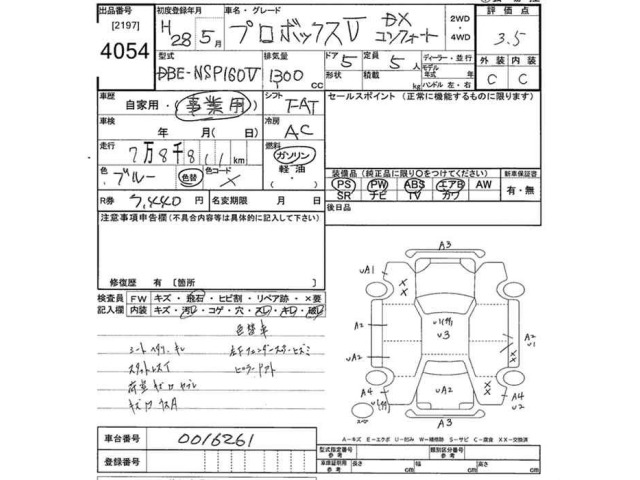 出品番号 初度登録年月 車名・グレード 評価点
[2197] H28年5月 プロボックスV DX コンフォート 2WD・4WD 3.5
4054 型式 排気量 ドア 5 定員 5人 ディーラー・並行 外装 内装
DBE-NSP160V 1300cc 形状 積載 kg モデル年式 年 ハンドル 左・右 C C
車歴 自家用・事業用 シフト FAT セールスポイント(正常に機能するものに限ります)
車検 年 月(日) 冷房 AC
走行 7万8千811km 燃料 ガソリン 軽油
色 ブルー 色替 色コード ×
装備品(純正品に限り○をつけてください) 新車保証書
PS PW ABS エアB AW 有・無
SR ナビ TV カワ
R券 7,440円 名変期限 月 日 後日品
注意事項申告欄(不具合内容等は具体的に記入して下さい)
修復歴 有[箇所 ]
検査員記入欄 FW キズ・飛石・ヒビ割・リペア跡・×要
内装 キズ・汚レ・コゲ・穴・スレ・キレ・破レ
色替車
シートヘタリ、キレ
スタッドレスT
A3
uA1
××
u3
A2
u1
uA2
uA2
A4
A4
u2
A3
A-キズ E-エクボ U-凹み W-補修跡 S-サビ C-腐食 XX-交換済
車台番号 0016261
登録番号
型式指定番号 類別区分番号
車検証期用参考 長さ cm 幅 cm 高さ cm